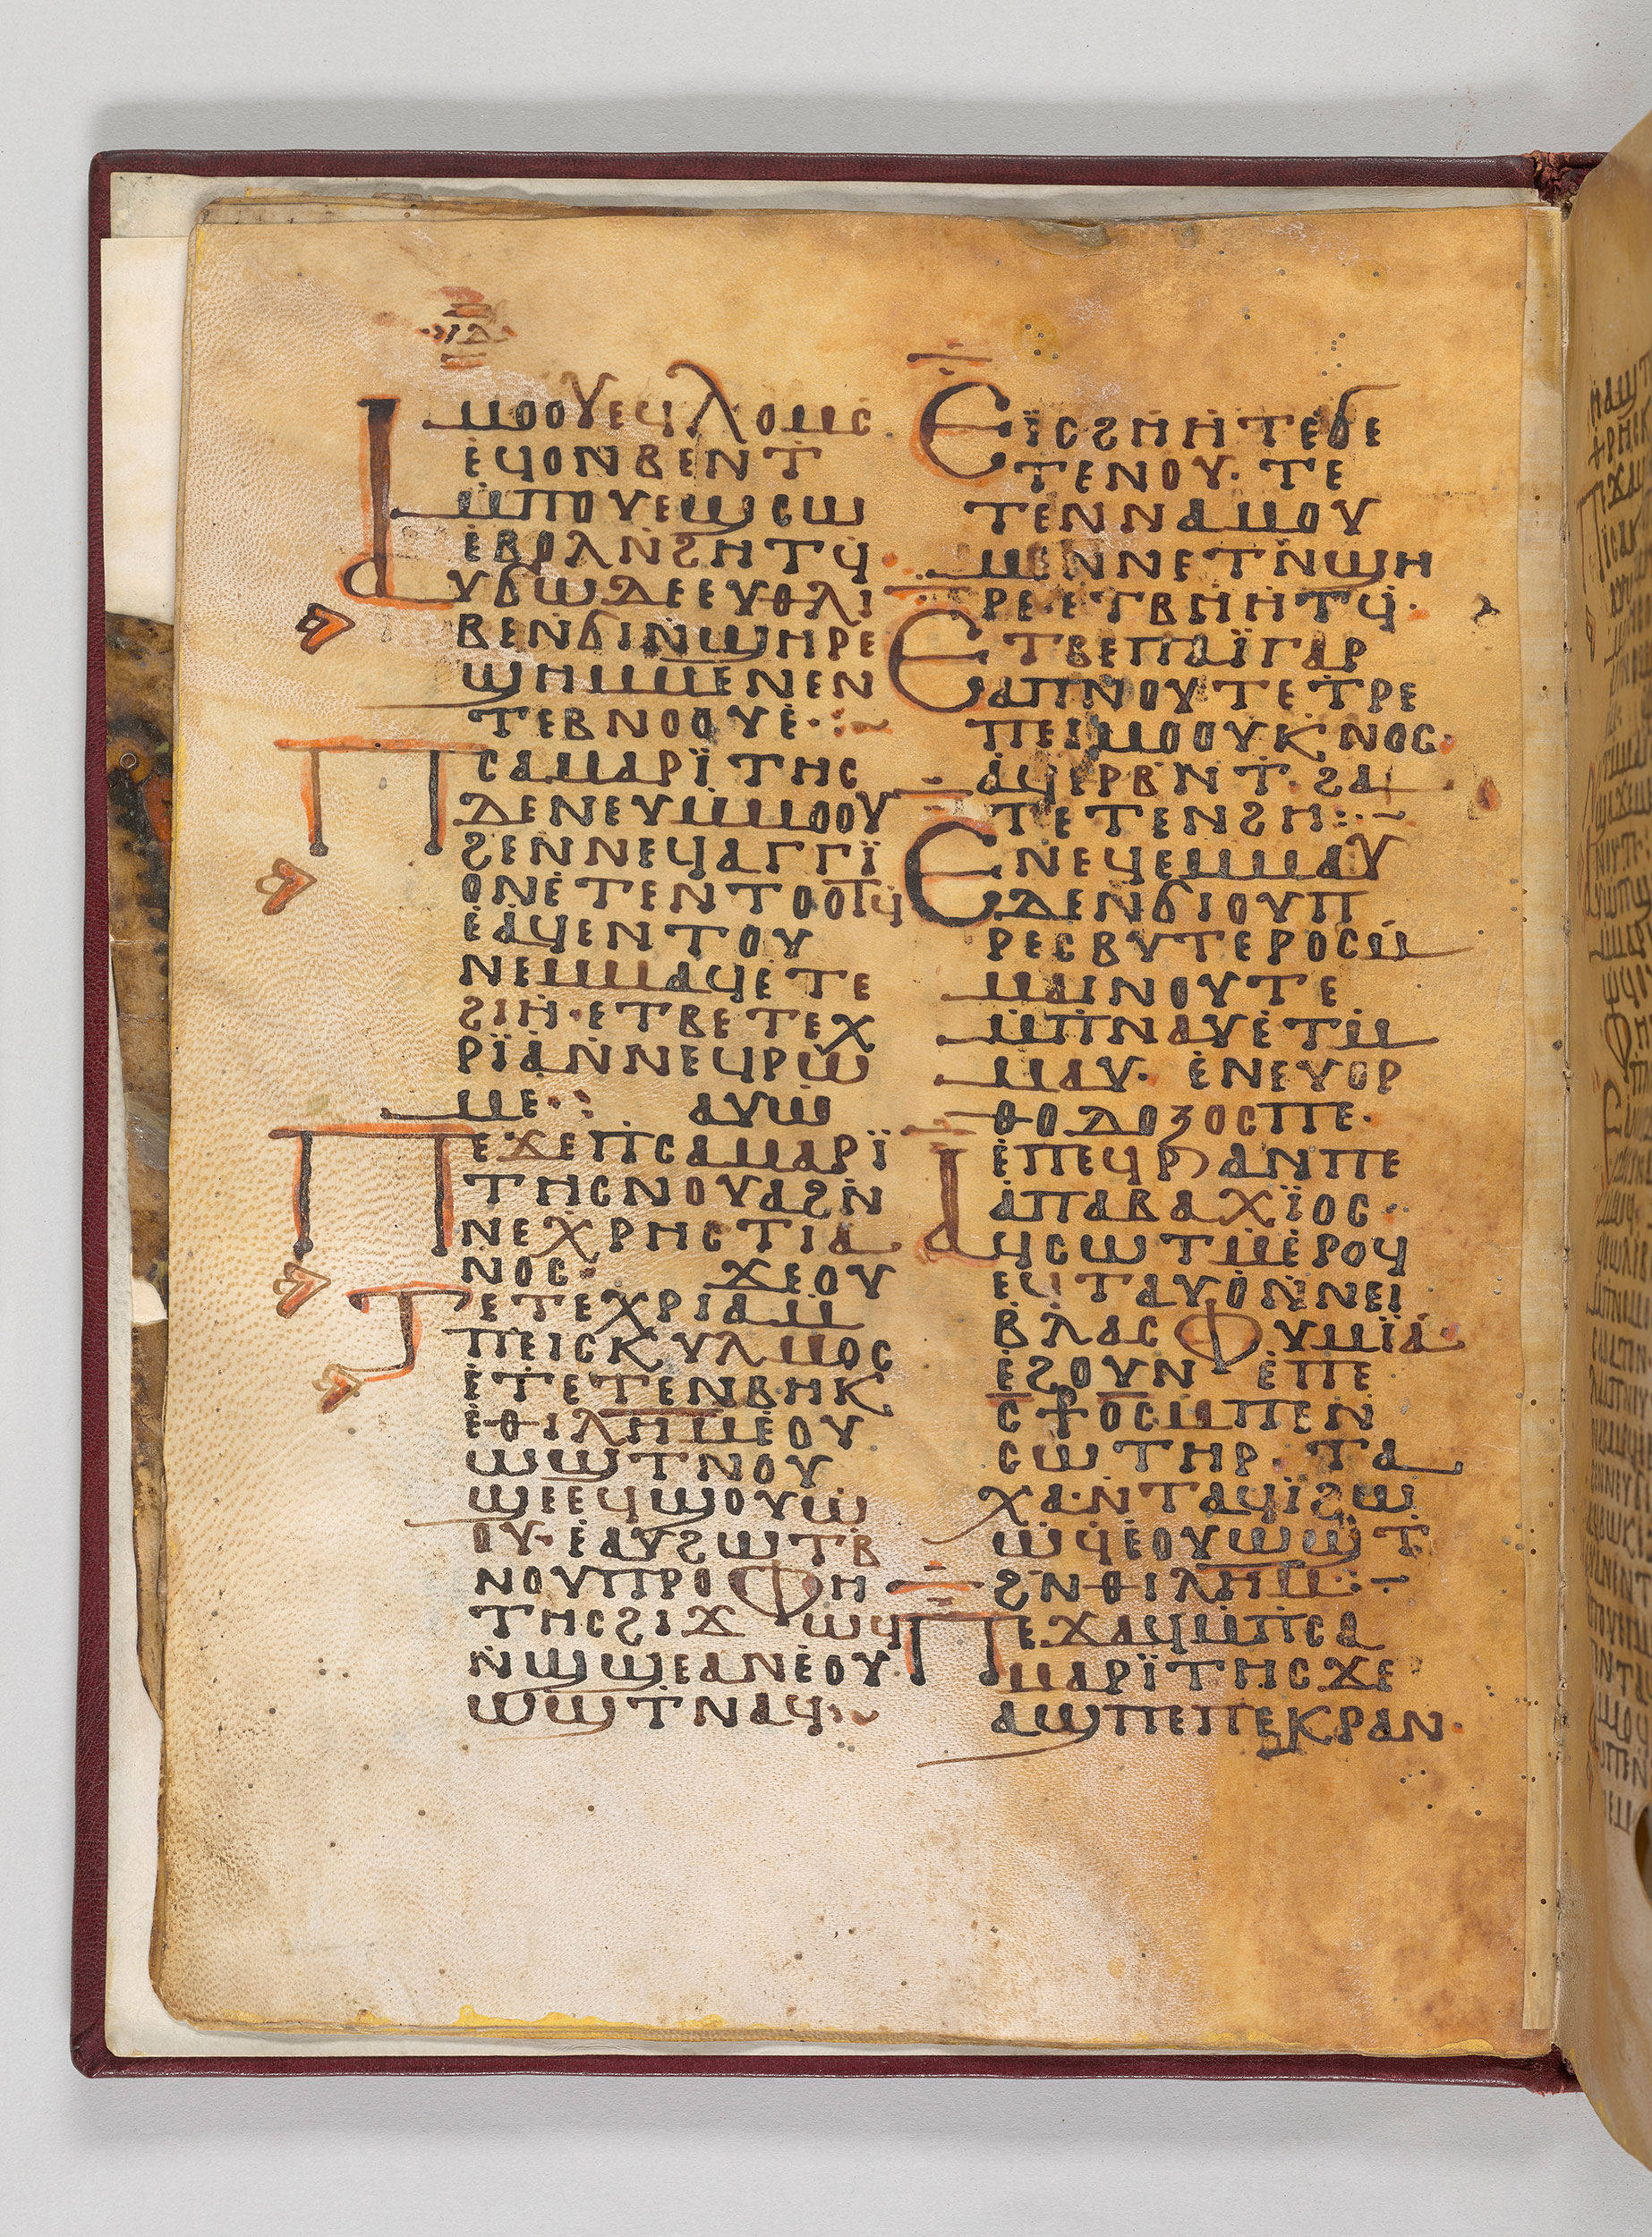 ⲓⲇ
ⲙⲟⲟⲩ ⲉϥⲗⲟⲙⲥ
ⲉϥⲟⲛⲃⲉⲛⲧ
ⲙⲡⲟⲩⲉϣⲥⲱ
ⲉⲃⲟⲗⲛϩⲏⲧϥ
ⲁⲩϭⲱⲇⲉⲉⲩⲑⲗⲓ
ⲃⲉⲛϭⲓⲛϣⲏⲣⲉ
ϣⲏⲙⲙⲉⲛⲉⲛ
ⲧⲉⲃⲛⲟⲟⲩⲉ·
ⲡⲥⲁⲙⲁⲣⲓ̈ⲧⲏⲥ
ⲇⲉⲛⲉⲩⲙⲙⲟⲟⲩ
ϩⲉⲛⲛⲉϥⲁⲅⲅⲓ̈
ⲟⲛⲉⲧⲉⲛⲧⲟⲟⲧϥ
ⲉⲁϥⲉⲛⲧⲟⲩ
ⲛⲉⲙⲙⲁϥⲉⲧⲉ
ϩⲓⲏ·ⲉⲧⲃⲉⲧⲉⲭ
ⲣⲓ̈ⲁⲛⲛⲉϥⲣⲱ
ⲙⲉ· ⲁⲩⲱ
ⲡⲉϫⲉⲡⲥⲁⲙⲁⲣⲓ̈
ⲧⲏⲥⲛⲟⲩⲁϩⲛ
ⲛⲉⲭⲣⲏⲥⲧⲓⲁ
ⲛⲟⲥ· ϫⲉⲟⲩ
ⲧⲉⲧⲉⲭⲣⲓⲁⲙ
ⲡⲉⲓⲥⲕⲩⲗⲙⲟⲥ
ⲉⲧⲉⲧⲉⲛⲃⲏⲕ
ⲉⲑⲓⲗⲏⲙⲉⲟⲩ
ⲱϣⲧⲛⲟⲩ
ϣⲉⲉϥϣⲟⲩⲱ
ⲟⲩ·ⲉⲁⲩϩⲱⲧⲃ
ⲛⲟⲩⲡⲣⲟⲫⲏ
ⲧⲏⲥϩⲓϫⲱϥ
ⲛϣϣⲉⲁⲛⲉⲟⲩ
ⲱϣⲧⲛⲁϥ·
ⲉⲓ̈ⲥϩⲏⲏⲧⲉϭⲉ
ⲧⲉⲛⲟⲩ·ⲧⲉ
ⲧⲉⲛⲛⲁⲙⲟⲩ
ⲙⲉⲛⲛⲉⲧⲛϣⲏ
ⲣⲉ·ⲉⲧⲃⲏⲏⲧϥ·
ⲉⲧⲃⲉⲡⲁⲓ̈ⲅⲁⲣ
ⲁⲡⲛⲟⲩⲧⲉⲧⲣⲉ
ⲡⲉⲓⲙⲟⲟⲩⲕⲛⲟⲥ·
ⲁϥⲉⲣⲃⲛⲧ·ϩⲁ
ⲧⲉⲧⲉⲛϩⲏ:
ⲉⲛⲉϥⲉⲙⲙⲁⲩ
ⲇⲉⲛϭⲓⲟⲩⲡ
ⲣⲉⲥⲃⲩⲧⲉⲣⲟⲥⲙ
ⲙⲁⲓⲛⲟⲩⲧⲉ
ⲙⲡⲛⲁⲩⲉⲧⲙ
ⲙⲁⲩ· ⲉⲛⲉⲩⲟⲣ
ⲑⲟⲇⲟⲝⲟⲥⲡⲉ·
ⲉⲡⲉϥⲣⲁⲛⲡⲉ
ⲁⲡⲁⲃⲁⲭⲓ̈ⲟⲥ·
ⲁϥⲥⲱⲧⲙⲉⲣⲟϥ
ⲉϥⲧⲁⲩⲟⲛⲛⲉⲓ
ⲃⲗⲁⲥⲫⲩⲙⲓ̈ⲁ·
ⲉϩⲟⲩⲛ ⲉⲡⲉ
ⲥϯⲟⲥⲙⲡⲉⲛ
ⲥⲱⲧⲏⲣ ⲧⲁ
ⲭⲁ·ⲛⲧⲁϥⲓ̈ϩⲱ
ⲱϥⲉⲟⲩⲱϣⲧ
ϩⲛⲑⲓⲗⲏⲙ:
ⲡⲉϫⲁϥⲙⲡⲥⲁ
ⲙⲁⲣⲓ̈ⲧⲏⲥϫⲉ
ⲁϣⲡⲉⲡⲉⲕⲣⲁⲛ·